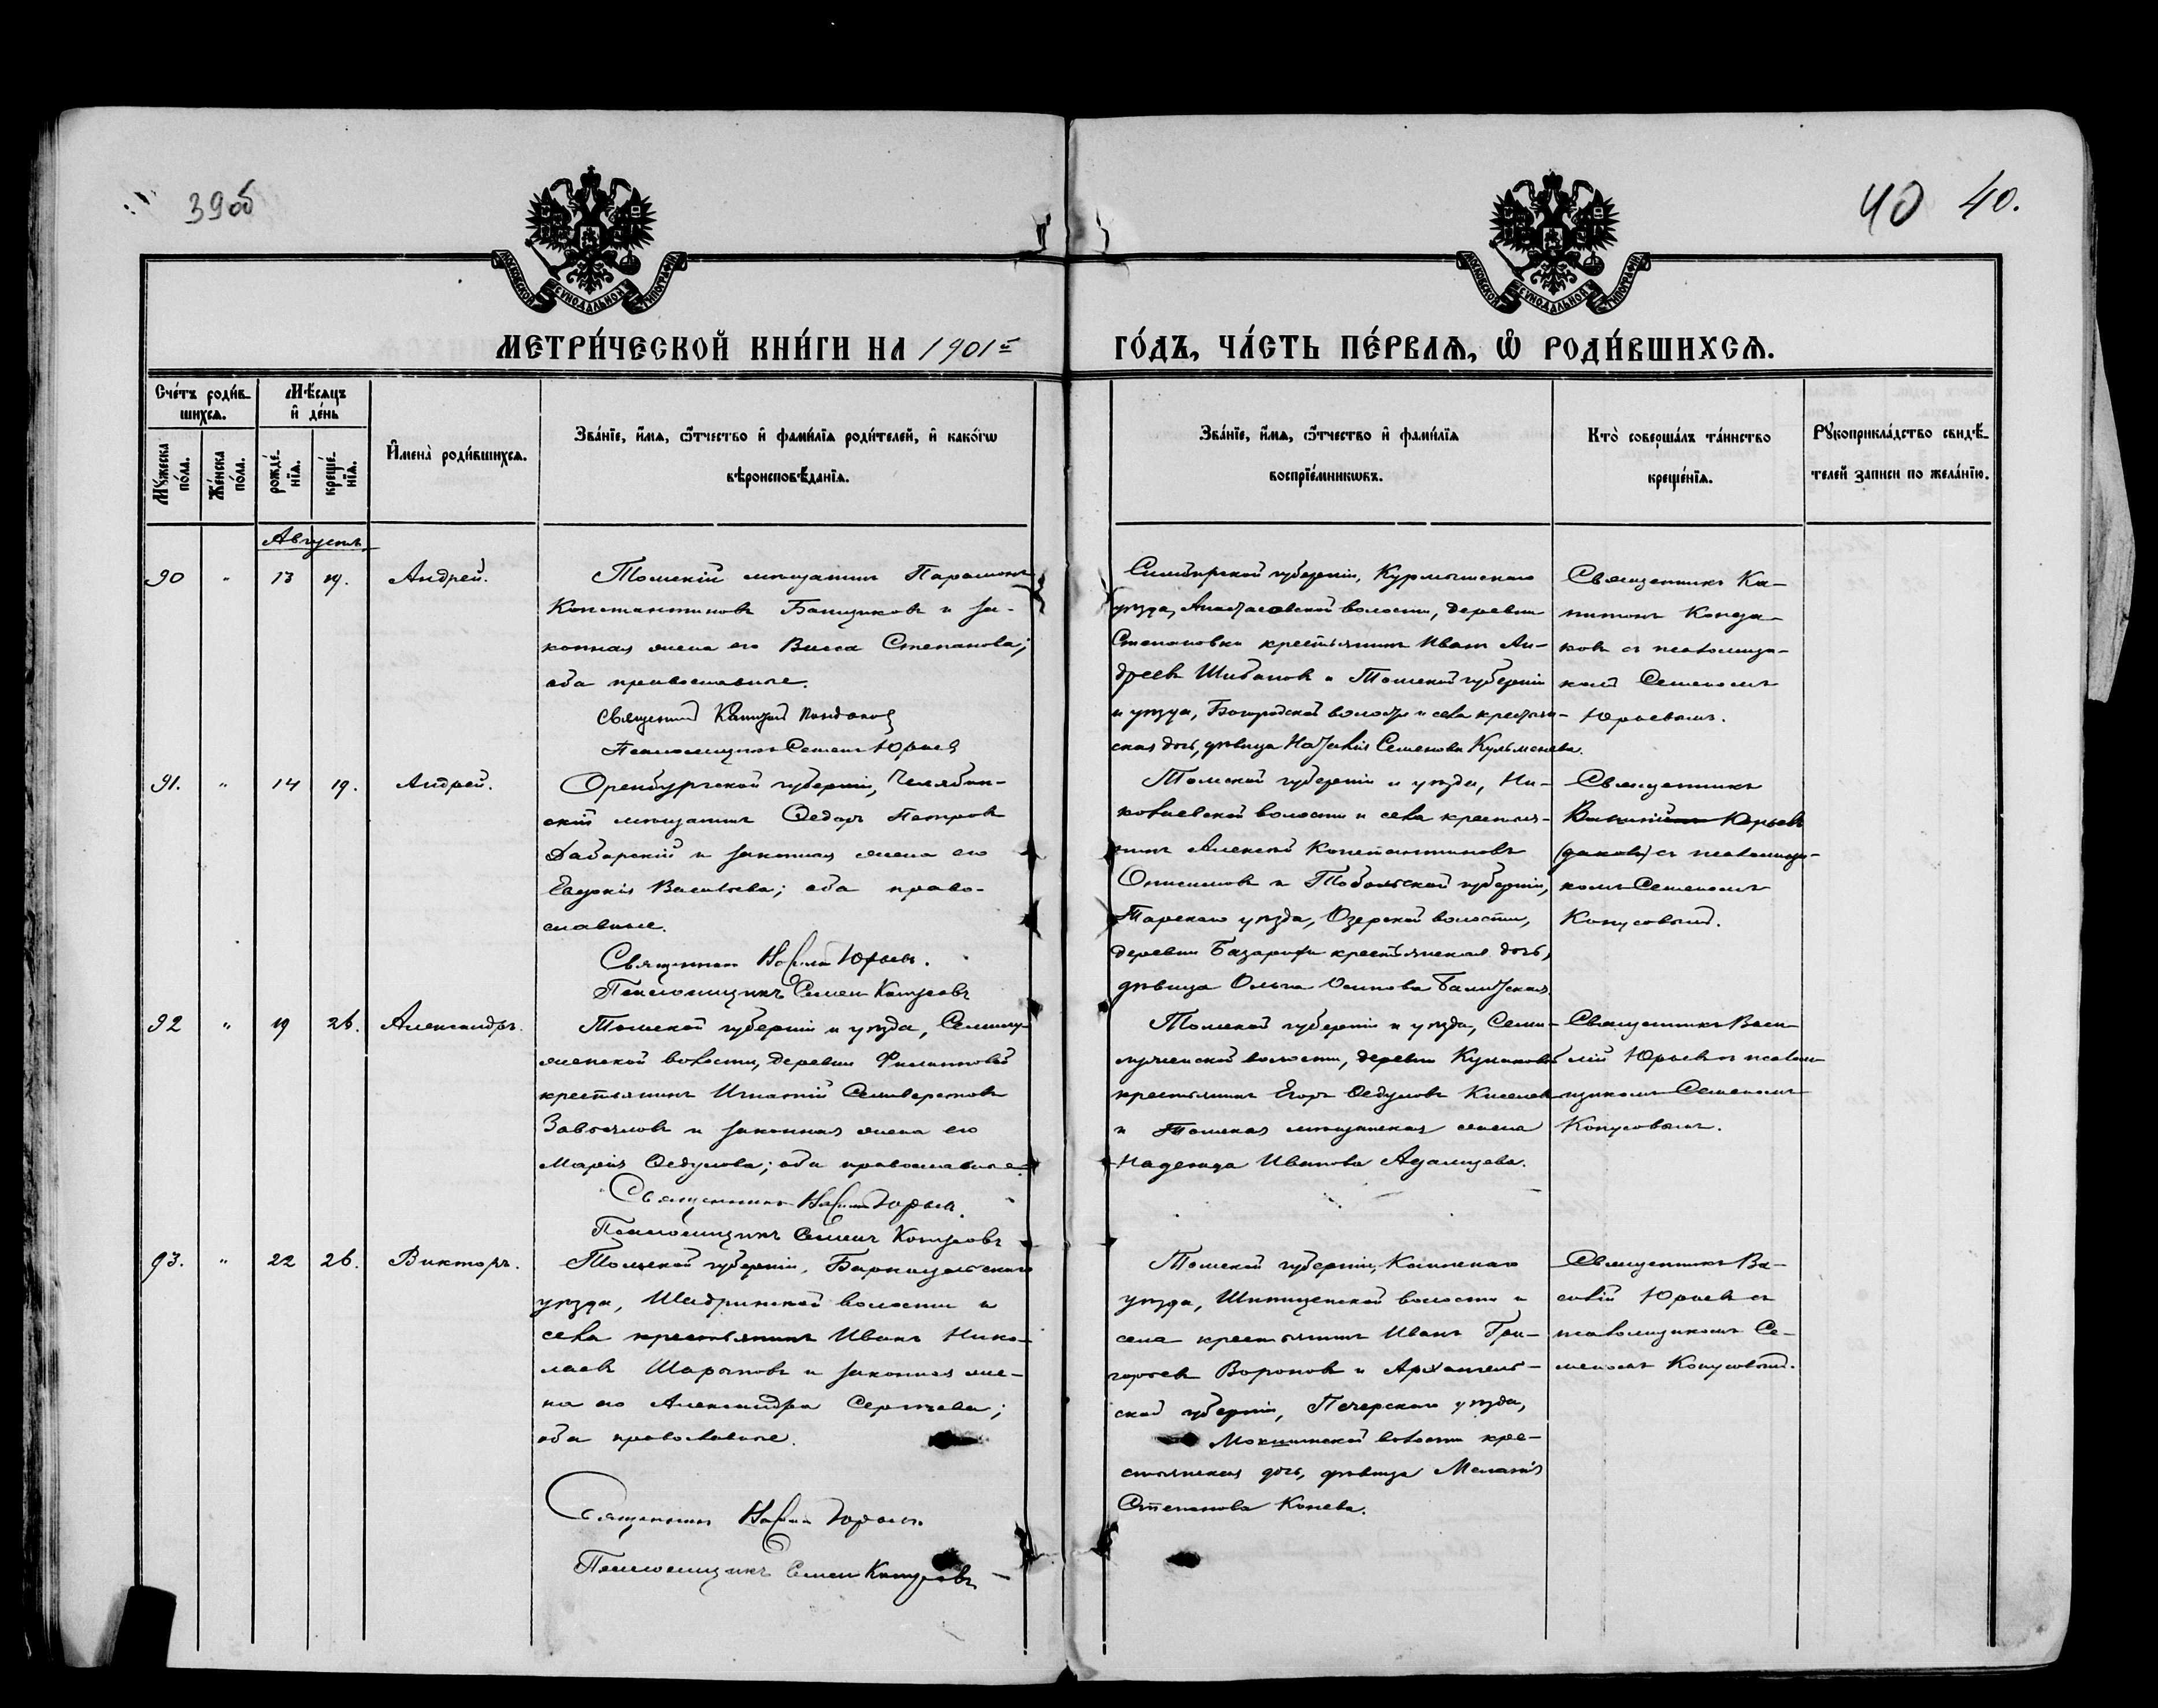 39об
40 40.
МОСКОВСКОЙ СѴНОДАЛЬНОЙ ТИПОГРАФІИ
МОСКОВСКОЙ СѴНОДАЛЬНОЙ ТИПОГРАФІИ
МЕТРИ́ЧЕСКОЙ КНИ́ГИ НА 1901й
ГО́ДЪ, ЧА́СТЬ ПЕ́РВАѦ, Ѡ҆ РОДИ́ВШИХСѦ.
Сче́тъ роди́в-
шихсѧ.
Мꙋ́жеска по́ла.
Же́нска по́ла.
Мѣ́сяцъ
и҆ де́нь
рожде́-нїѧ.
креще́-нїѧ.
И҆мена̀ роди́вшихсѧ.
Зва́нїе, и҆́мѧ, ѻ҆́тчество и҆ фами́лїѧ роди́телей, и҆ како́гѡ
вѣроисповѣ́данїѧ.
Зва́нїе, и҆́мѧ, ѻ҆́тчество и҆ фами́лїѧ
воспрїе́мникѡвъ.
Кто̀ соверша́лъ та́инство
креще́нїѧ.
Рꙋкоприкла́дство свидѣ́-
телей записи по жела́нїю.
Августъ
90 " 13 19. Андрей.
Томскій мѣщанинъ Парамонъ
Константиновъ Банщиковъ и за-
конная жена его Васса Степанова;
оба православные.
Священникъ Капитонъ Кондаковъ
Псаломщикъ Семенъ Юрьевъ
Симбирской губерніи, Курмышскаго
уѣзда, Анастасовской волости, деревни
Степановки крестьянинъ Иванъ Ан-
дреевъ Шибановъ и Томской губерніи
и уѣзда, Богородской волости и села крестьян-
ская дочь, дѣвица Наталія Семенова Кульменева.
Священникъ Ка-
питонъ Конда-
ковъ съ псаломщи-
комъ Семеномъ
Юрьевымъ.
91. " 14 19. Андрей.
Оренбургской губерніи, Челябин-
скій мѣщанинъ Ѳедоръ Петровъ
и законная жена его
Евдокія Васильева; оба право-
славные.
Священникъ Василій Юрьевъ.
Псаломщикъ Семенъ
Томской губерніи и уѣзда, Ни-
колаевской волости и села крестья-
нинъ Алексѣй Константиновъ
Онисимовъ и Тобольской губерніи,
Тарскаго уѣзда, Озерской волости,
деревни крестьянская дочь,
дѣвица Ольга Осипова
Священникъ
Василій Юрьевъ
съ псаломщи-
комъ Семеномъ
92 " 19 26. Александръ.
Томской губерніи и уѣзда, Семилу-
женской волости, деревни Филипповой
крестьянинъ Игнатій Селиверстовъ
Завьяловъ и законная жена его
Марія Ѳедулова; оба православные.
Священникъ Василій Юрьевъ.
Псаломщикъ Семенъ
Томской губерніи и уѣзда, Семи-
луженской волости, деревни
крестьянинъ Егоръ Ѳедуловъ Киселевъ
и Томская мѣщанская жена
Надежда Иванова
Священникъ Васи-
лій Юрьевъ съ псалом-
щикомъ Семеномъ
93. " 22 26. Викторъ.
Томской губерніи, Барнаульскаго
уѣзда, Шадринской волости и
села крестьянинъ Иванъ Нико-
лаевъ Шарыповъ и законная же-
на его Александра Сергѣева;
оба православные.
Священникъ Василій Юрьевъ.
Псаломщикъ Семенъ
Томской губерніи, Каинскаго
уѣзда, Шипицинской волости и
села крестьянинъ Иванъ Гри-
горьевъ Вороновъ и Архангель-
ской губерніи, Печерскаго уѣзда,
волости кре-
стьянская дочь, дѣвица Меланія
Степанова Конева.
Священникъ Ва-
силій Юрьевъ съ
псаломщикомъ Се-
меномъ